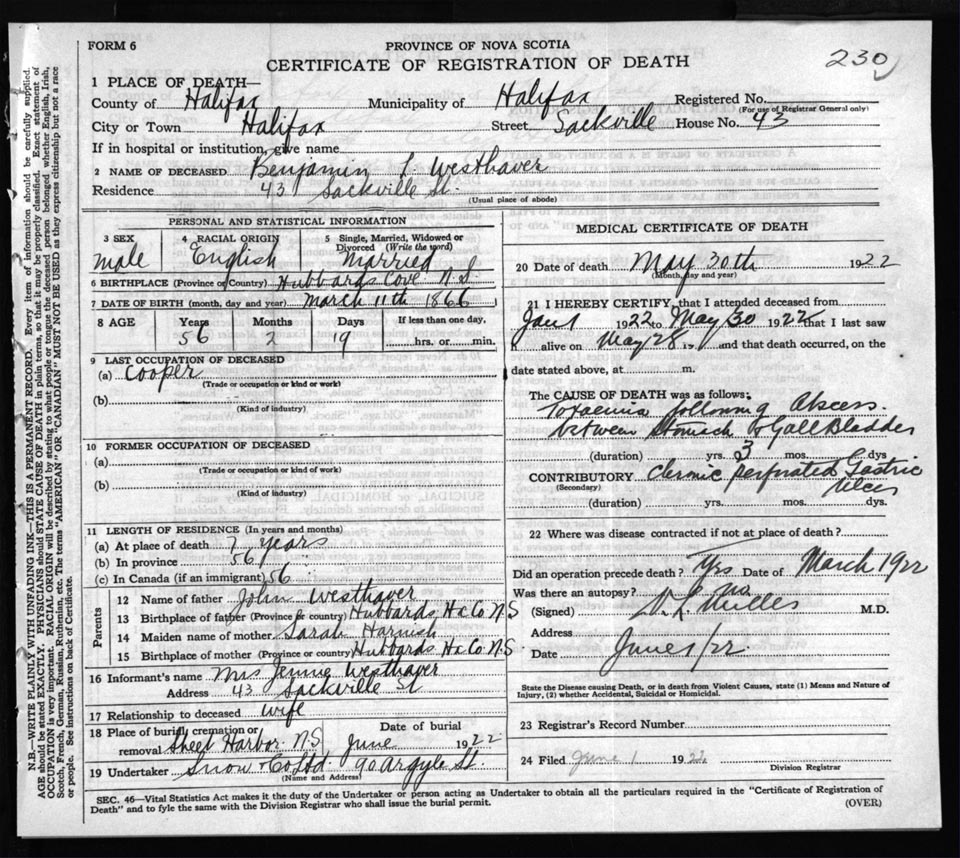 FORM 6
PROVINCE OF NOVA SCOTIA
CERTIFICATE OF REGISTRATION OF DEATH
230
1 PLACE OF DEATH—
County of Halifax Municipality of Halifax Registered No.
(For use of Registrar General only)
City or Town Halifax Street Sackville House No. 43
If in hospital or institution, give name
2 NAME OF DECEASED Benjamin L Westhaver
Residence 43 Sackville St.
(Usual place of abode)
PERSONAL AND STATISTICAL INFORMATION
3 SEX 4 RACIAL ORIGIN 5 Single, Married, Widowed or Divorced (Write the word)
male English Married
6 BIRTHPLACE (Province or Country) Hubbards Cove N.S.
7 DATE OF BIRTH (month, day and year) March 11th 1866
8 AGE Years Months Days If less than one day.
56 2 19 hrs. or min.
9 LAST OCCUPATION OF DECEASED
(a) Cooper
(Trade or occupation or kind of work)
(b)
(Kind of industry)
10 FORMER OCCUPATION OF DECEASED
(a)
(Trade or occupation or kind of work)
(b)
(Kind of industry)
11 LENGTH OF RESIDENCE (In years and months)
(a) At place of death 7 years
(b) In province 56
(c) In Canada (if an immigrant) 56
Parents
12 Name of father John Westhaver
13 Birthplace of father (Province or country) Hubbards Hx Co NS
14 Maiden name of mother Sarah Harnish
15 Birthplace of mother (Province or country) Hubbards Hx Co. N.S
16 Informant's name Mrs Jennie Westhaver
Address 43 Sackville St
17 Relationship to deceased wife
18 Place of burial, cremation or removal Sheet Harbor NS Date of burial June 1922
19 Undertaker Snow & Co Ltd 90 Argyle St.
(Name and Address)
MEDICAL CERTIFICATE OF DEATH
20 Date of death May 30th 1922
(Month, day and year)
21 I HEREBY CERTIFY, that I attended deceased from
Jan 1 1922 to May 30 1922 that I last saw
alive on May 28, 19 and that death occurred, on the
date stated above, at m.
The CAUSE OF DEATH was as follows:
Toxaemia following Abscess
between Stomach & Gall Bladder
(duration) yrs. 3 mos. dys
CONTRIBUTORY Chronic perforated Gastric
(Secondary) Ulcer
(duration) yrs. mos. dys.
22 Where was disease contracted if not at place of death?
Did an operation precede death? Yes Date of March 1922
Was there an autopsy? No
(Signed) M.D.
Address
Date June 1/22
State the Disease causing Death, or in death from Violent Causes, state (1) Means and Nature of
Injury, (2) whether Accidental, Suicidal or Homicidal.
23 Registrar's Record Number
24 Filed June 1 1922
Division Registrar
SEC. 46—Vital Statistics Act makes it the duty of the Undertaker or person acting as Undertaker to obtain all the particulars required in the "Certificate of Registration of
Death" and to fyle the same with the Division Registrar who shall issue the burial permit.
(OVER)
N.B.—WRITE PLAINLY WITH UNFADING INK—THIS IS A PERMANENT RECORD. Every item of information should be carefully supplied.
AGE should be stated EXACTLY. PHYSICIANS should STATE CAUSE OF DEATH in plain terms, so that it may be properly classified. Exact statement of
OCCUPATION is very important. RACIAL ORIGIN will be described by stating to what people or tongue the deceased person belonged, whether English, Irish,
Scotch, French, German, Russian, Ruthenian, etc. The terms "AMERICAN" OR "CANADIAN" MUST NOT BE USED as they express citizenship but not a race
or people. See instructions on back of Certificate.